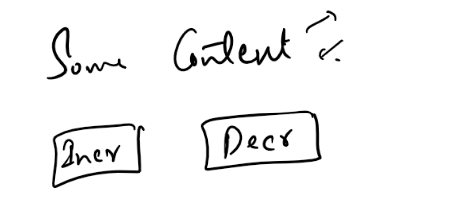 Some Content
Incr Decr